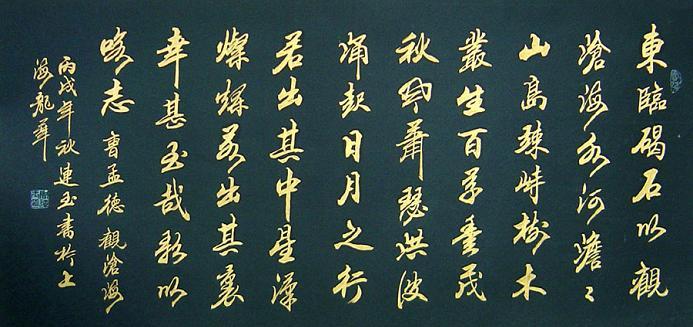 東臨碣石以觀
滄海水何澹〻
山島竦峙樹木
叢生百草豐茂
秋風蕭瑟洪波
涌起日月之行
若出其中星漢
燦爛若出其裏
幸甚至哉歌以
詠志 曹孟德觀滄海
丙戌年秋連玉書於上
海龍華